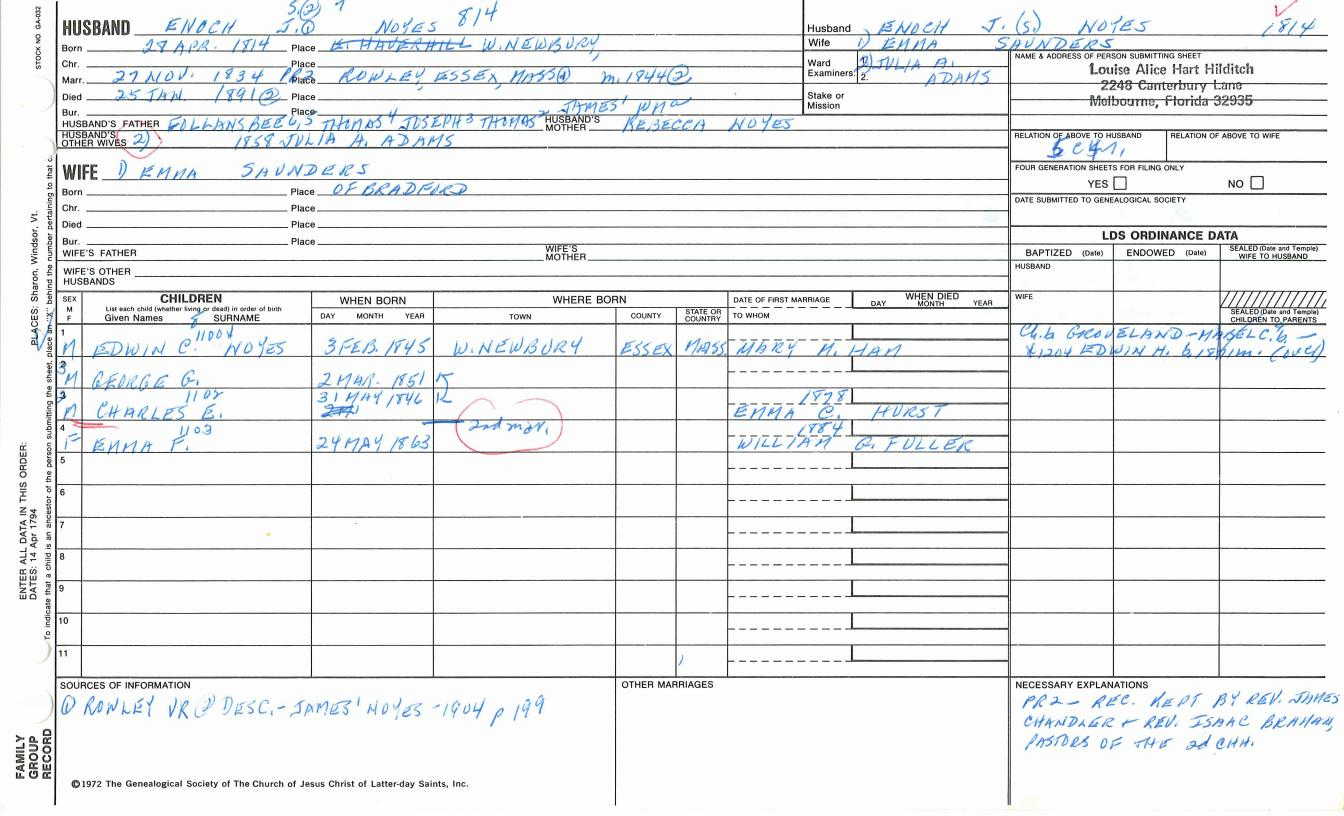 S.(2) 7
HUSBAND ENOCH J.① NOYES 814
Born 28 APR. 1814 Place E. HAVERHILL W. NEWBURY,
Chr. Place
Marr. 27 NOV. 1834 PR2 Place ROWLEY, ESSEX, MASS① m. 1844②
Died 25 JAN. 1891② Place
Bur. Place JAMES' Wm
HUSBAND'S FATHER FOLLANSBEE6, 5 THOMAS4 JOSEPH3 THOMAS2 HUSBAND'S MOTHER REBECCA NOYES
HUSBAND'S OTHER WIVES 2) 1858 JULIA A. ADAMS
WIFE 1) EMMA SAUNDERS
Born Place OF BRADFORD
Chr. Place
Died Place
Bur. Place
WIFE'S FATHER WIFE'S MOTHER
WIFE'S OTHER HUSBANDS
Husband ENOCH J. (S.) NOYES 1814
Wife 1) EMMA SAUNDERS
Ward Examiners: 1. 2) JULIA A.
2. ADAMS
Stake or Mission
NAME & ADDRESS OF PERSON SUBMITTING SHEET
Louise Alice Hart Hilditch
2248 Canterbury Lane
Melbourne, Florida 32935
RELATION OF ABOVE TO HUSBAND RELATION OF ABOVE TO WIFE
FOUR GENERATION SHEETS FOR FILING ONLY
YES NO
DATE SUBMITTED TO GENEALOGICAL SOCIETY
LDS ORDINANCE DATA
BAPTIZED (Date) ENDOWED (Date) SEALED (Date and Temple) WIFE TO HUSBAND
HUSBAND
WIFE
SEALED (Date and Temple) CHILDREN TO PARENTS
SEX M F CHILDREN WHEN BORN WHERE BORN DATE OF FIRST MARRIAGE WHEN DIED
List each child (whether living or dead) in order of birth
Given Names 8 SURNAME DAY MONTH YEAR TOWN COUNTY STATE OR COUNTRY TO WHOM DAY MONTH YEAR
1 1100
M EDWIN C. NOYES 3 FEB. 1845 W. NEWBURY ESSEX MASS MARY M. HAM
Ch. b GROVELAND - b. -
1204 EDWIN H.
2
M GEORGE G. 2 MAR. 1851
3 1102 31 MAY 1846 1878
M CHARLES E. EMMA C. HURST
4 1103 2nd mar. 1884
F EMMA F. 24 MAY 1863 WILLIAM G. FULLER
5
6
7
8
9
10
11
SOURCES OF INFORMATION
① ROWLEY VR ② DESC. - JAMES' NOYES - 1904 p 199
OTHER MARRIAGES
NECESSARY EXPLANATIONS
PR2 - REC. KEPT BY REV. JAMES
CHANDLER & REV. ISAAC BRAHAM,
PASTORS OF THE 2d CHH.
©1972 The Genealogical Society of The Church of Jesus Christ of Latter-day Saints, Inc.
STOCK NO. GA-032
PLACES: Sharon, Windsor, Vt.
To indicate that a child is an ancestor of the person submitting the sheet, place an "X" behind the number pertaining to that c
ENTER ALL DATA IN THIS ORDER:
DATES: 14 Apr 1794
FAMILY GROUP RECORD